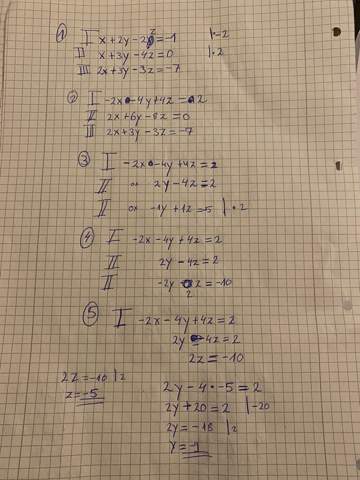 ① I x+2y-2z=-1 |·-2
II x+3y-4z=0 |·2
III 2x+3y-3z=-7
② I -2x-4y+4z=2
II 2x+6y-8z=0
III 2x+3y-3z=-7
③ I -2x-4y+4z=2
II 0x 2y-4z=2
II 0x -1y+1z=-5 |·2
④ I -2x-4y+4z=2
II 2y-4z=2
II -2y 2z=-10
⑤ I -2x-4y+4z=2
2y-4z=2
2z=-10
2z=-10 |2
z=-5
2y-4·-5=2
2y+20=2 |-20
2y=-18 |2
y=-9